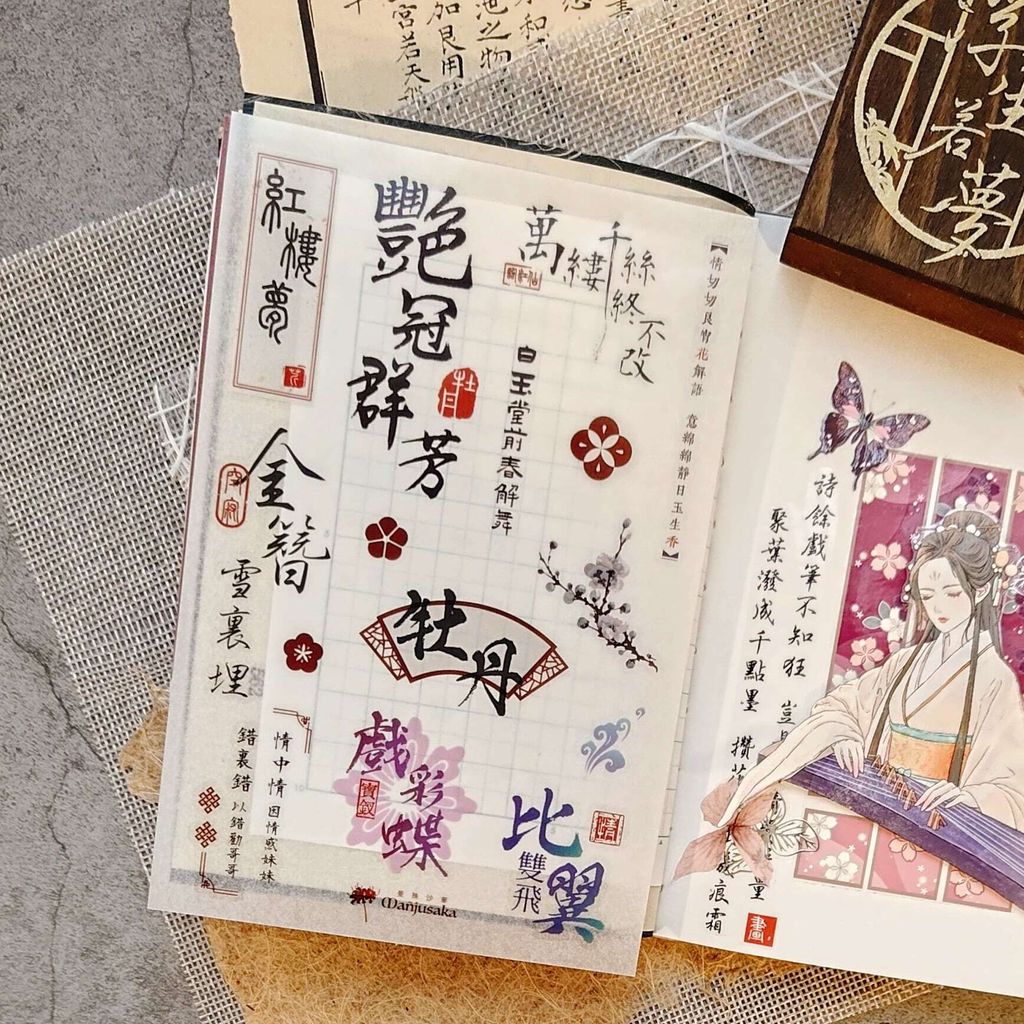 宮若天
加良用
池之物
紅樓夢
艷冠群芳
牡丹
萬縷千絲終不改
白玉堂前春解舞
【情切切良宵花解語 意綿綿靜日玉生香】
金簪
雪裏埋
牡丹
情中情因情感妹妹
錯裏錯以錯勸哥哥
戲彩蝶
寶釵
比翼
雙飛
曼陀沙華
Manjusaka
浮生若夢
詩餘戲筆不知狂 豈
聚葉潑成千點墨 攢
痕霜
畫